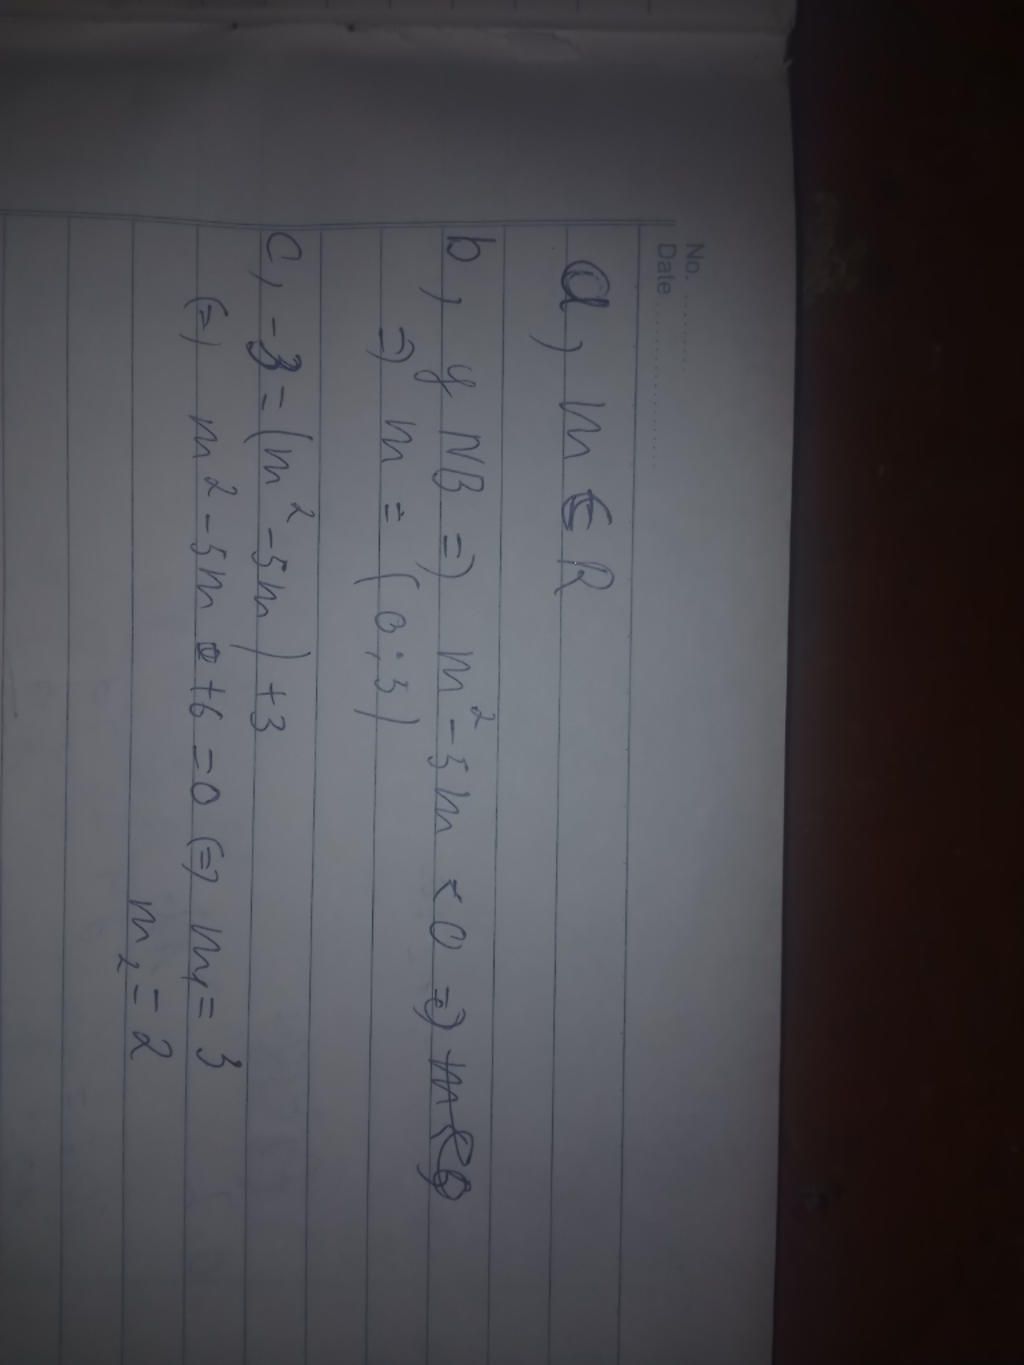 No. ..........
Date ....................
a, m ∈ R
b, y NB => m² - 5m < 0 =>
=> m = (0;5)
c, -3 = (m² - 5m) + 3
(=) m² - 5m + 6 = 0 (=) m₁ = 3
m₂ = 2